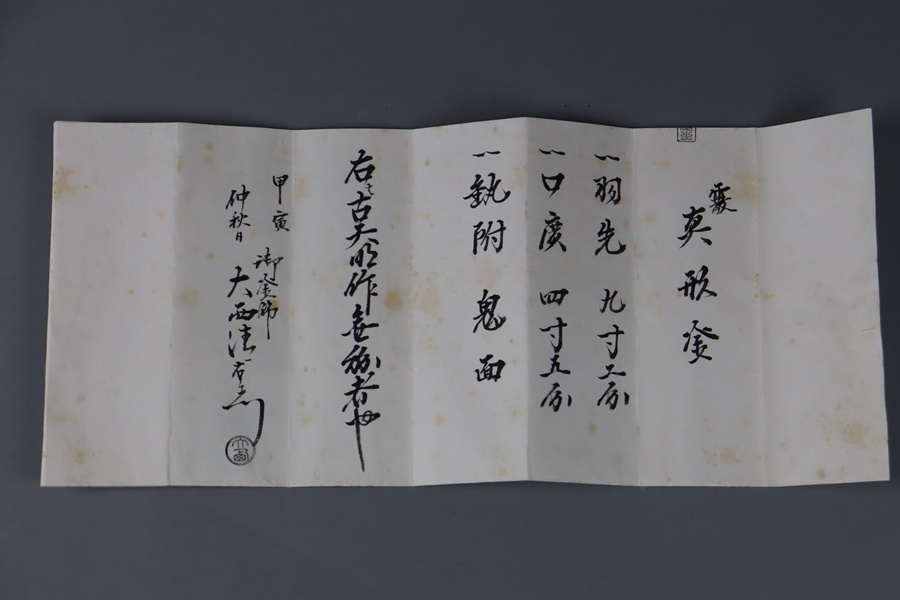 霰
真形釜
一羽先 九寸二分
一口廣 四寸五分
一執附 鬼面
右之古天明作無紛者也
甲寅
仲秋日
御釜師
大西清右衛門